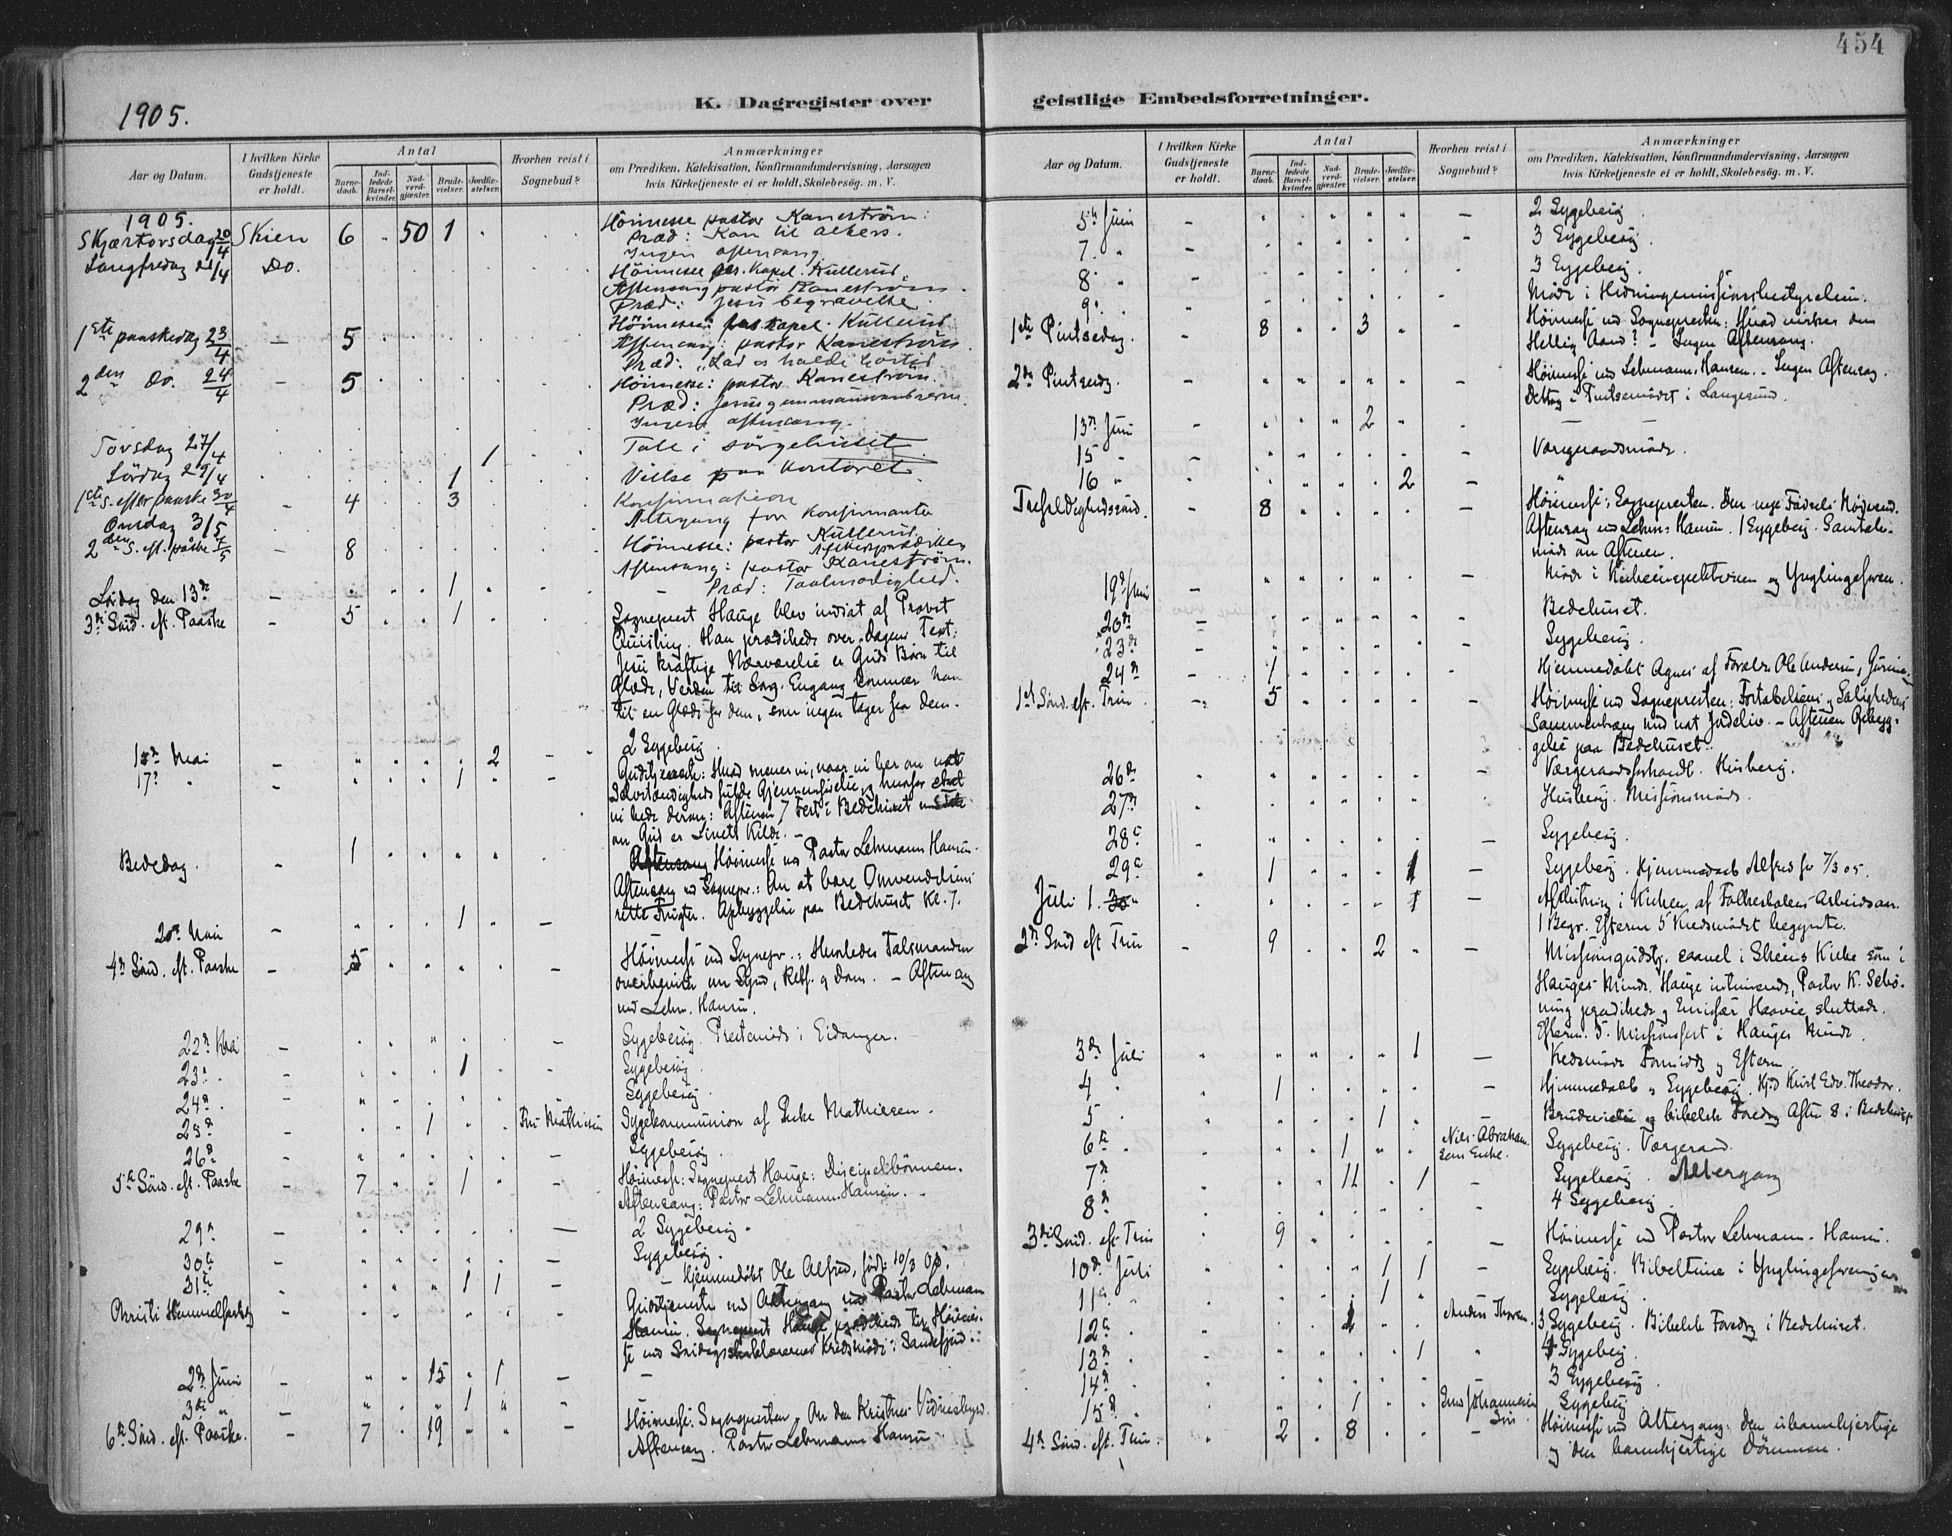 454
1905.
K. Dagregister over
Aar og Datum.
I hvilken Kirke Gudstjeneste er holdt.
Antal
Barnedaab.
Indledede Barselkvinder.
Nadverdgjæster.
Brudevielser.
Jordfæstelser.
Hvorhen reist i Sognebud?
Anmærkninger
om Prædiken, Katekisation, Konfirmandundervisning, Aarsagen
hvis Kirketjeneste ei er holdt, Skolebesøg. m. V.
1905.
Skjærtorsdag 20/4 Skien 6 50 1 Höimesse pastor Kaneström:
Præd: Kom til alters.
Ingen aftensang
Langfredag 21/4 Do. Höimesse res. kapel. Kullerud.
Aftensang pastor Kaneström.
Præd: Jesu begravelse.
1ste paaskedag 23/4 - 5 Höimesse: res. kapel. Kullerud
Aftensang: pastor Kaneström
Præd: "Lad os holde höitid
2den Do. 24/4 - 5 Höimesse: pastor Kaneström.
Præd: Jesus
Ingen aftensang.
Torsdag 27/4 1 Tale i sörgehuset
Lördag 29/4 1 Vielse paa kontoret
1ste S. efter paaske 30/4 - 4 3 Konfirmation
Onsdag 3/5 Altergang for Konfirmanter
2den S. eft. påske 7/5 - 8 Höimesse: pastor Kullerud
Aftensang: pastor Kaneström.
Præd: Taalmodighed.
Lördag den 13de - 1
3die Sönd. eft. Paaske - 5 1 Sogneprest Hauge blev indsat af Provst
Quisling. Han prædikede over dagens Text:
Jesu kraftige Nærværelse er Guds Börn til
Glæde, Verden til Sorg. Engang kommer han
til en Glæde for dem, som ingen tager fra dem.
Mai - 2 2 Sygebesög.
17. " - 1 Gudstjeneste: Hvad mener vi, naar vi ber om vor
Selvstændigheds fulde Gjennemförelse, og hvorfor skal
vi bede derom: Aftenen 7 Fest i Bedehuset
om Gud er Livets Kilde. -
Bededag. - 1 Höimesse ved Pastor Lehmann Hansen.
Aftensang ved Sognepr.: Om at bære Omvendelsens
rette Frugter. Opbyggelse paa Bedehuset Kl. 7.
20de Mai - 1 -
4de Sönd. eft. Paaske - 5 Höimesse ved Sognepr.: Hvorledes Talsmanden
overbeviser om Synd, Retf. og Dom. - Aftensang
ved Lehm. Hansen.
22de Mai - Sygebesög. Prestemöde i Eidanger.
23. - 1 Sygebesög.
24de - Sygebesög.
25de 1 Fru Mathisen Sygekommunion af Enke Mathiesen.
26de Sygebesög.
5te Sönd. eft. Paaske - 7 1 Höimesse: Sogneprest Hauge: Discipelbönnen.
Aftensang: Pastor Lehmann-Hansen. -
29de - 2 Sygebesög.
30te - Sygebesög.
31te - 1 1 - Hjemmedöbt Ole Alfred, född 10/3 05.
Christi Himmelfartsdag - Gudstjeneste med Altergang ved Pastor Lehmann
Hansen. Sogneprest Hauge prædikede til Höimes-
se ved Söndagsskolelærernes Kredsmöde i Sandefjord.
2den Juni - 15 1 - -
3die " - 1
6te Sönd. eft. Paaske. - 7 19 Höimesse. Sognepresten. Om den Kristnes Vidnesbyrd.
Aftensang. Pastor Lehmann Hansen
geistlige Embedsforretninger.
Aar og Datum.
I hvilken Kirke Gudstjeneste er holdt.
Antal
Barnedaab.
Indledede Barselkvinder.
Nadverdgjæster.
Brudevielser.
Jordfæstelser.
Hvorhen reist i Sognebud?
Anmærkninger
om Prædiken, Katekisation, Konfirmandundervisning, Aarsagen
hvis Kirketjeneste ei er holdt, Skolebesög. m. V.
5te Juni - - 2 Sygebesög.
7. " - - 3 Sygebesög.
8. " - 3 Sygebesög.
9. - - Möde i Hedningemissionsbestyrelsen.
1ste Pintsedag. - 8 3 - Höimesse ved Sognepresten: Hvad virker den
Hellig Aand? - Ingen Aftensang.
2den Pintsedag - - Höimesse ved Lehmann Hansen. - Ingen Aftensang.
Deltog i Pintsemödet i Langesund.
13de Juni - 2 -
15 - - Værgeraadsmöde.
16 " 2 - "
Trefoldighedssönd. - 8 Höimesse: Sognepresten. Den nye Födsels Nödvend.
Aftensang ved Lehm. Hansen. 1 Sygebesög. Samtale-
möde om Aftenen.
19de Juni - - Möde i Kirkeinspektionen og Ynglingeforen.
20de - - Bedehuset.
23de - - Sygebesög.
24de - 1 - Hjemmedöbt Agnes af Forældre Ole Andersen,
1ste Sönd. eft. Trin. - 5 - Höimesse ved Sognepresten: Fortabelsens og Salighedens
Sammenhæng med vort Jordeliv. - Aftenen Opbyg-
gelse paa Bedehuset.
26de - Værgeraadsforhandl. Husbesög.
27de - Husbesög. Missionsmöde.
28de - Sygebesög.
29de 1 1 - Sygebesög. Hjemmedaab Alfred för 7/3 05.
Juli 1. 1 Afslutning i Kirken af Folkeskolens Arbeidsaar.
1 Begr. Efterm 5 Kredsmödet begynte.
2den Sönd eft Trin - 9 2 - Missionsgudstj. saavel i Skiens Kirke som i
Hauges Minde. Hauge intimerede, Pastor K. Schö-
ning prædikede og Emissær Haavie sluttede.
Efterm. 5. Missionsfest i Hauges Minde.
3die Juli 1 - Kredsmöde Formidd. og Efterm.
4 " 1 - Hjemmedaab og Sygebesög. Kjöd Kurt Edv. Theodor.
5 " 1 - Brudevielse og bibelsk Foredrag Aften 8 i Bedehuset
6te " 1 Nils Abraham- Sygebesög. Værgeraad.
sens Enke.
7de 11 1 - Sygebesög. Altergang
8de 4 Sygebesög
3die Sönd. eft. Trin 9 - Höimesse ved Pastor Lehmann-Hansen.
10de Juli 1 1 - Sygebesög. Bibeltime i Ynglingeforeningen
11te " 1 Sygebesög.
12te " 2 3 Sygebesög. Bibelsk Foredrag i Bedehuset.
13de " 1 4 Sygebesög.
14de 3 Sygebesög.
15de " 1 Sygebesög
4de Sönd. eft. Trin. 2 8 - Höimesse med Altergang: den ubarmhjertige
og den barmhjertige Dömmen.